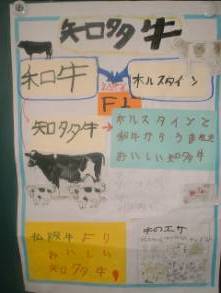 知多牛
和牛
ホルスタイン
F1
知多牛
ホルスタインと
和牛からうまれた
おいしい知多牛
松阪牛より
おいしい
知多牛!
牛のエサ